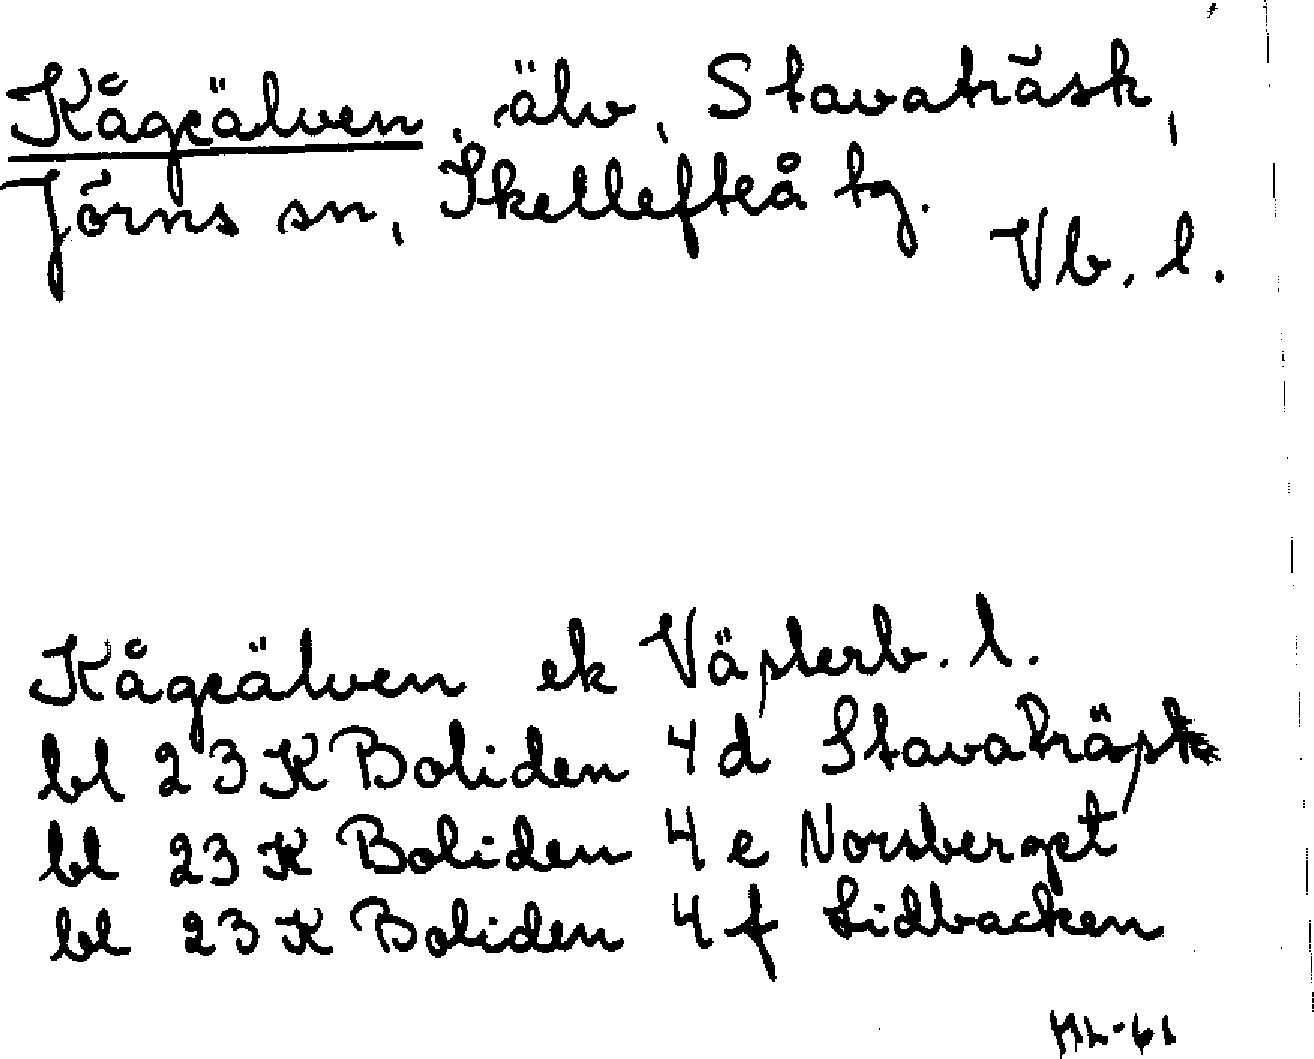 Kågeälven, älv, Stavaträsk,
Jörns sn, Skellefteå tg.
Vb. l.
Kågeälven ek Västerb. l.
bl 23 K Boliden 4 d Stavaträsk
bl 23 K Boliden 4 e Norsberget
bl 23 K Boliden 4 f Lidbacken